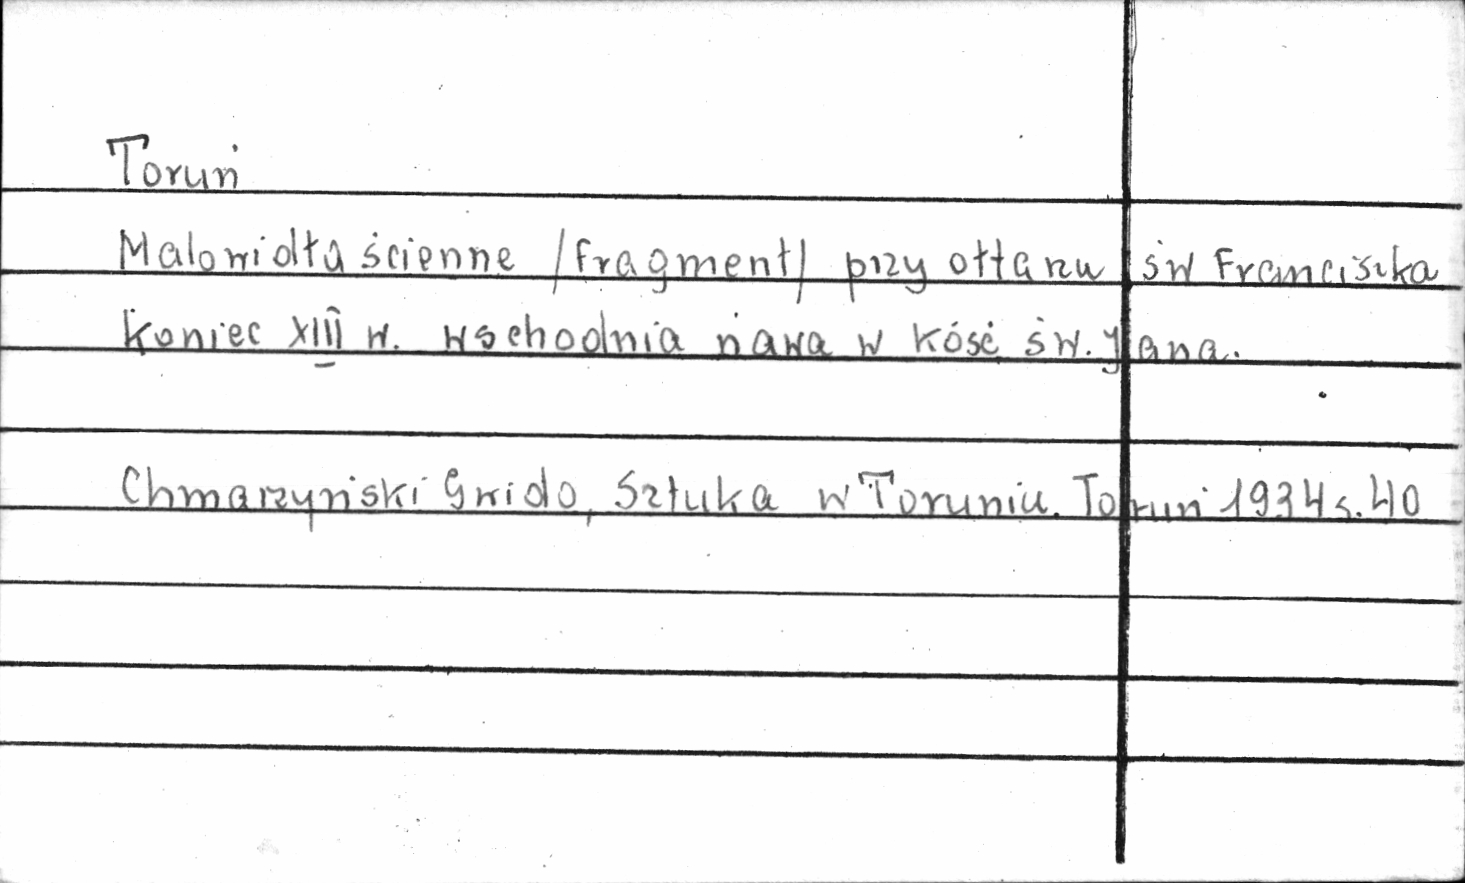 Toruń
Malowidła ścienne /fragment/ przy ołtarzu św Franciszka
koniec XIII w. wschodnia nawa w Kość św. Jana.
Chmarzyński Gwido, Sztuka w Toruniu. Toruń 1934 s. 40